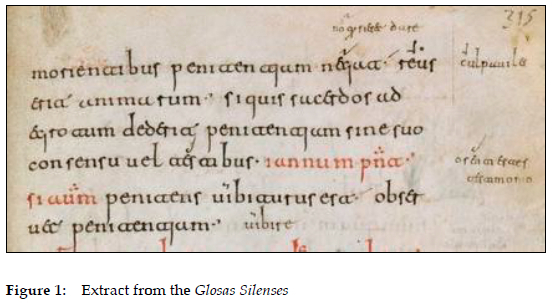 315
dare
morientibus penitentjam reus
culpauile
erit animarum· siquis sacerdos ad
egrotum dederit penitentjam sine suo
consensu uel testibus· iannum pnt̄·
si aūm penitens uibiturus est· obser
uet penitentjam· uibire
Figure 1: Extract from the Glosas Silenses